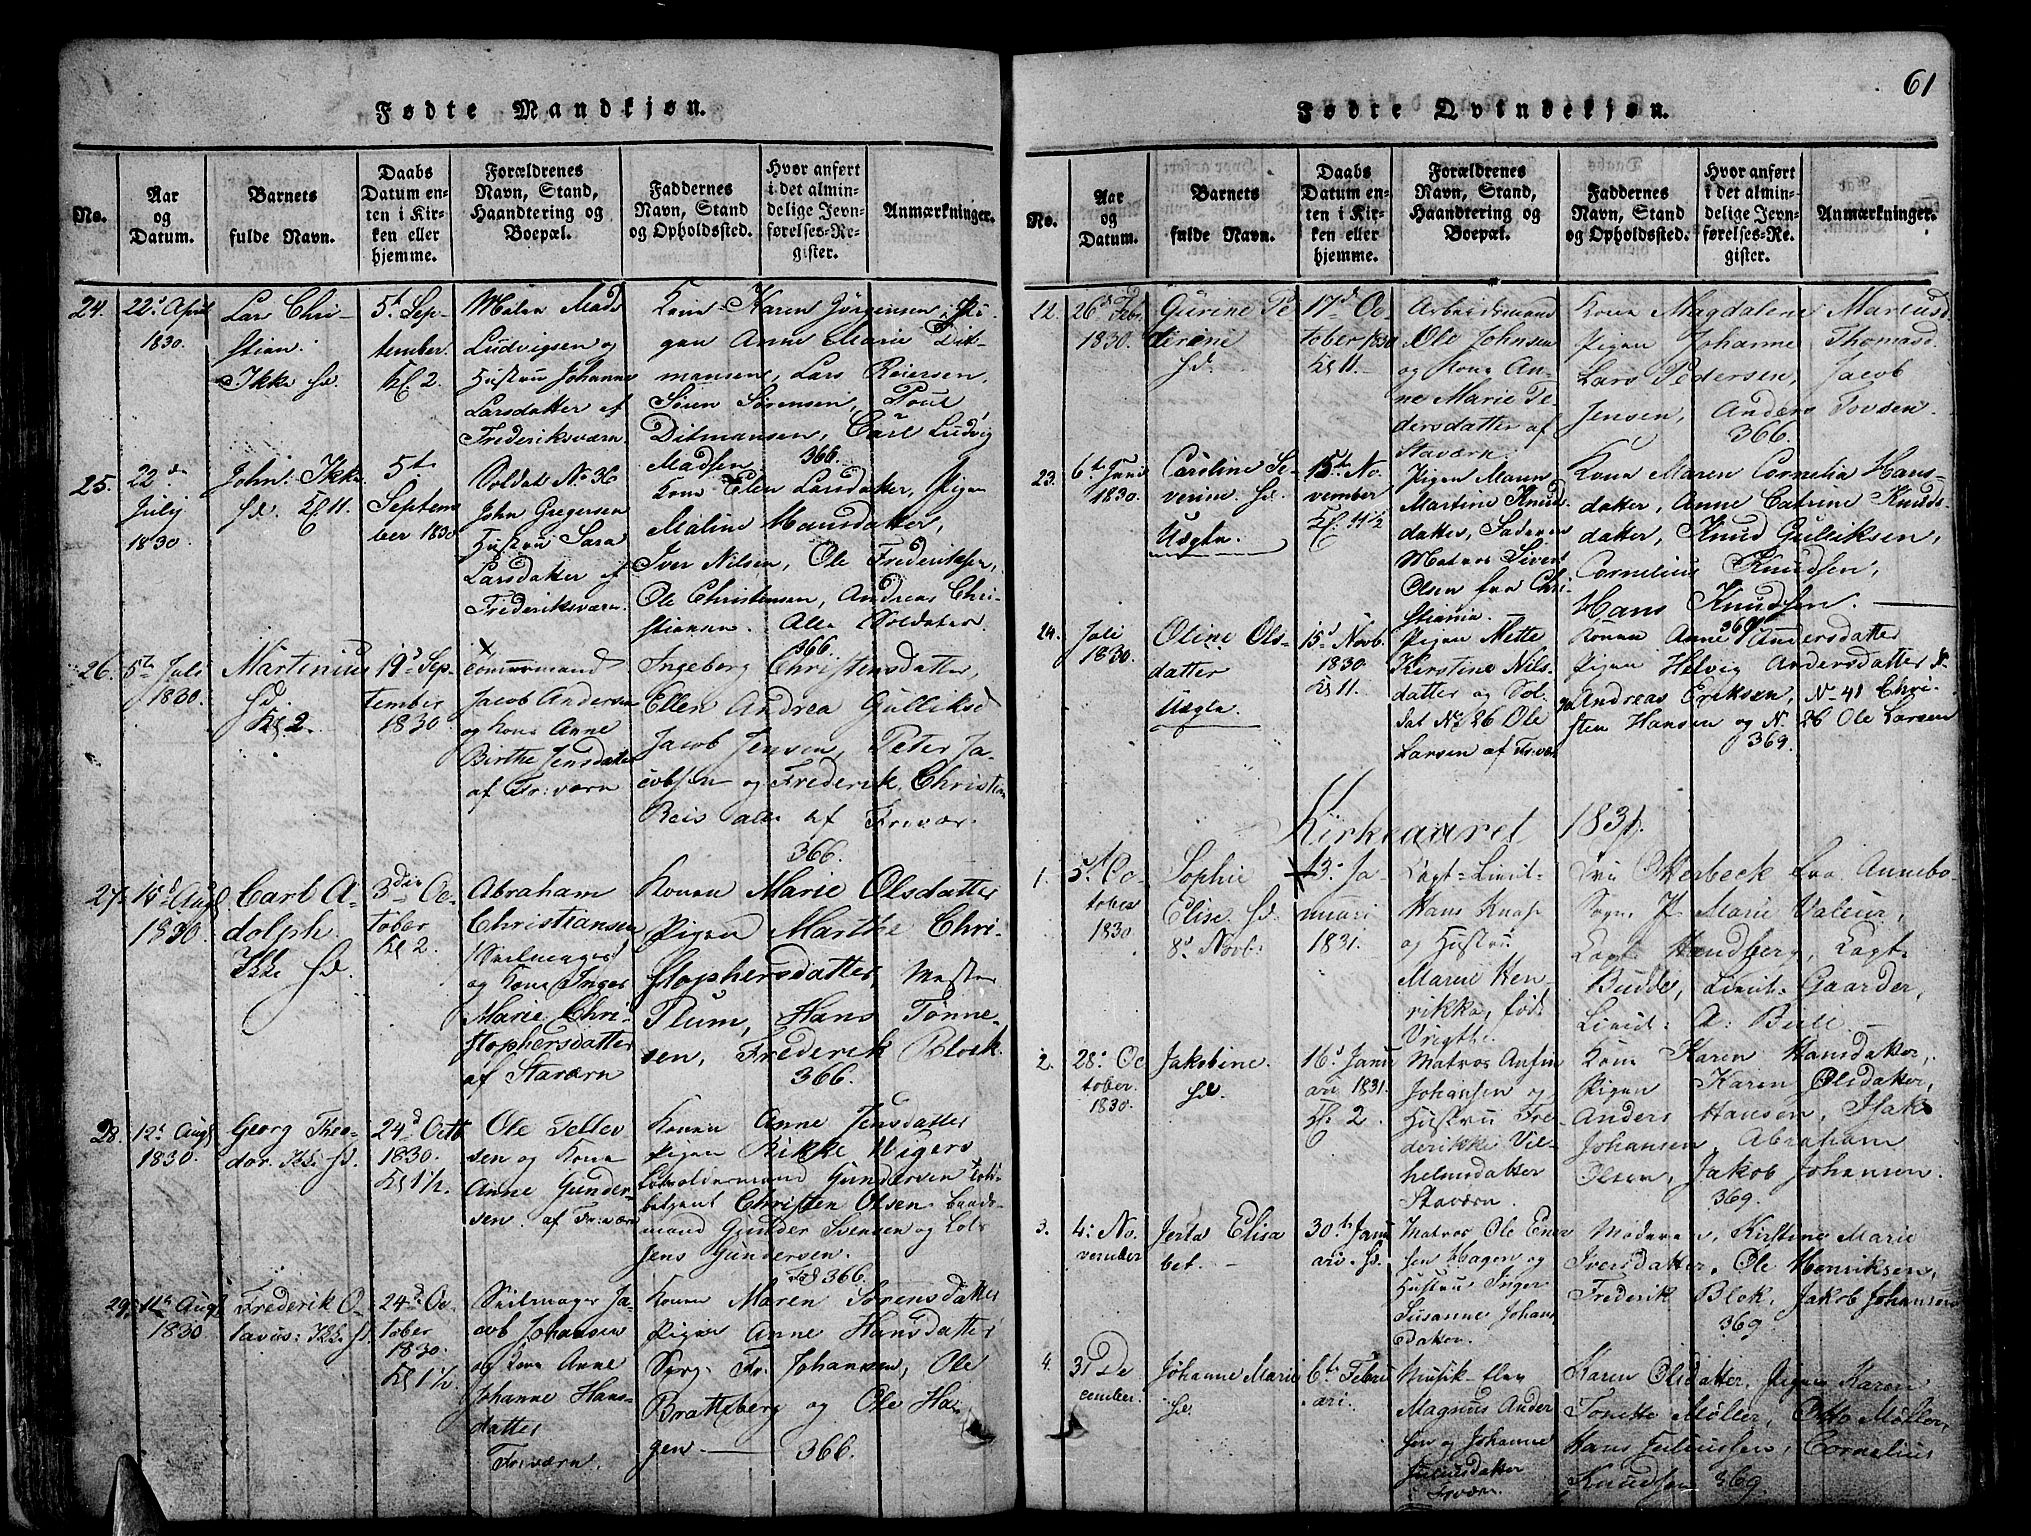 61
Fødte Mandkjøn.
No.
Aar
og
Datum.
Barnets
fulde Navn.
Daabs
Datum en-
ten i Kir-
ken eller
hjemme.
Forældrenes
Navn, Stand,
Haandtering og
Boepæl.
Faddernes
Navn, Stand
og Opholdssted.
Hvor anført
i det almin-
delige Jevn-
førelses-Re-
gister.
Anmærkninger.
24.
22d April
1830.
Lars Chri-
stian.
Ikke hd.
5t Sep-
tember.
Kl 2.
Mads
Ludvigsen og
Hustru Johanne
Larsdatter af
Frederiksværn
Kone Karen Jörgensen, Pi-
gen Anne Marie Dit-
mansens, Lars Reiersen,
Sören Sörensen, Poul
Ditmansen, Carl Ludvig
Madsen. 366.
25.
22de
July
1830.
John. Ikke
hd. Kl 11.
5te
Septem
ber 1830
Soldat No 36
John Gregersen
Hustru Sara
Larsdatter af
Frederiksværn.
Kone Elen Larsdatter, Pigen
Maline Hansdatter,
Iver Nilsen, Ole Frederiksen,
Ole Christensen, Andreas Chri-
stiansen. Alle Soldater.
366.
26.
5te Juli
1830.
Martinius
hd.
Kl 2.
19d Sep-
tember
1830.
Tömmermand
Jacob Andersen
og Kone Anne
Birthe Jensdatter
af Fr:værn
Ingeborg Christensdatter,
Ellen Andrea Gulliksd
Jacob Jensen, Peter Ja
cobsen og Frederik Christian
Reis alle af Fr:vær.
366.
27.
15d Aug
1830.
Carl A-
dolph.
Ikke hd.
3die Oc-
tober
Kl 2.
Abraham
Christiansen
Seilmager
og Kone Inger
Marie Chri-
stophersdatter
af Staværn
Konen Marie Olsdatter
Pigen Marthe Chri-
stophersdatter, Mester
Plum, Hans Tönne-
sen, Frederik Block.
366.
28.
12t Aug
1830.
Georg Theo-
dor. Ikke hd.
24d Octb
1830.
Kl 1½.
Ole Tellev
sen og Kone
Anne Gunder-
sen. af Fr:værn
Konen Anne Jensdatter
Pigen Rikke Wigers
Gundersen
Christen Olsen
mand Gunder Svensen og Lods
Jens Gundersen.
366.
29.
11te Aug
1830
Frederik O-
tavus: Ikke hd.
24d Oc-
tober
1830.
Kl 1½.
Seilmager Ja-
cob Johansen
og Kone Anne
Johanne Hans-
datter
Fr:værn.
Konen Maren Sörensdatter
Pigen Anne Hansdatter
Serg. Fr. Johansen, Ole
Brattsberg og Ole Ha-
gen. 366.
Fødte Qvindekjøn.
No.
Aar
og
Datum.
Barnets
fulde Navn.
Daabs
Datum en-
ten i Kir-
ken eller
hjemme.
Forældrenes
Navn, Stand,
Haandtering og
Boepæl.
Faddernes
Navn, Stand
og Opholdssted.
Hvor anført
i det almin-
delige Jevn-
førelses-Re-
gister.
Anmærkninger.
22.
26d Feb
1830.
Gurine Pe
terine
hd.
17d Oc-
tober 1830
Kl 11.
Arbeidsmand
Ole Johnsen
og Kone An-
ne Marie Pe-
dersdatter af
Staværn.
Kone Magdalene Mariusd
Pigen Johanne Thomasd.
Lars Pedersen, Jacob
Jensen, Anders Tovsen.
366.
23.
6te Juni
1830.
Caroline Se-
verine hd.
Uægte.
15de No-
vember
Kl. 11½
Pigen Maren
Martine Knud
datter, Faderen
Matros Sivert
Olsen fra Chri
stiania.
Kone Maren Cornelia Hans-
datter, Anne Catrine Knuds-
datter, Knud Gulliksen,
Cornelius Knudsen,
Hans Knudsen.
369
24.
Juli
1830.
Oline Ols-
datter
Uægte.
15d Novb
1830
Kl 11.
Pigen Mette
Kirstine Nils-
datter og Sol-
dat No 26 Ole
Larsen af Fr:vær
Konen Anne Andersdatter
Pigen Helvig Andersdatter N
Andreas Eriksen, No 41 Chri-
sten Hansen og N. 26 Ole Larsen
369.
Kirkeaaret 1831.
1.
5t Oc-
tober
1830
Sophie
Elise hd.
8d Novb:
13. Ja
nuari
1831.
Capt: Lieut-
Hans Knap
og Hustru
Maren Hen-
rikka, född
Vrigth.
Fru Otterbeck fra Annebo-
Sogn, J. Marie Valeur,
Capt Sandberg, Capt.
Budde, Lieut: Gaarder,
Lieut: A: Bull.
2.
28. Oc
tober.
1830.
Jakobine.
hd.
16d Janu
ari 1831.
Kl. 2
Matros Anfin
Johansen og
Hustru Fre-
derikke Vil-
helmsdatter
Staværn
Kone Karen Hansdatter,
Pigen Karen Olsdatter,
Anders Hansen, Isak
Johansen, Abraham
Olsen, Jakob Johansen.
369.
3.
4: No.
vember
Jerta Elisa
bet.
30te Janu
ari. hd.
Matros Ole Ener
sen Hagen og
Hustru Inger
Susanne Johan
sdatter.
Moderen, Kirstine Marie
Iversdatter, Ole Henriksen,
Frederik Blok, Jakob Johansen
369.
4.
31 De
cember.
Johanne Marie
hd.
6te Febru
ari.
Musik-elev
Magnus Ander
sen og Johanne
Juliusdatter
Fr:værn.
Karen Olsdatter, Pigen Karen
Tonette Møller, Otto Møller,
Hans Juliussen, Cornelius
Knudsen 369.